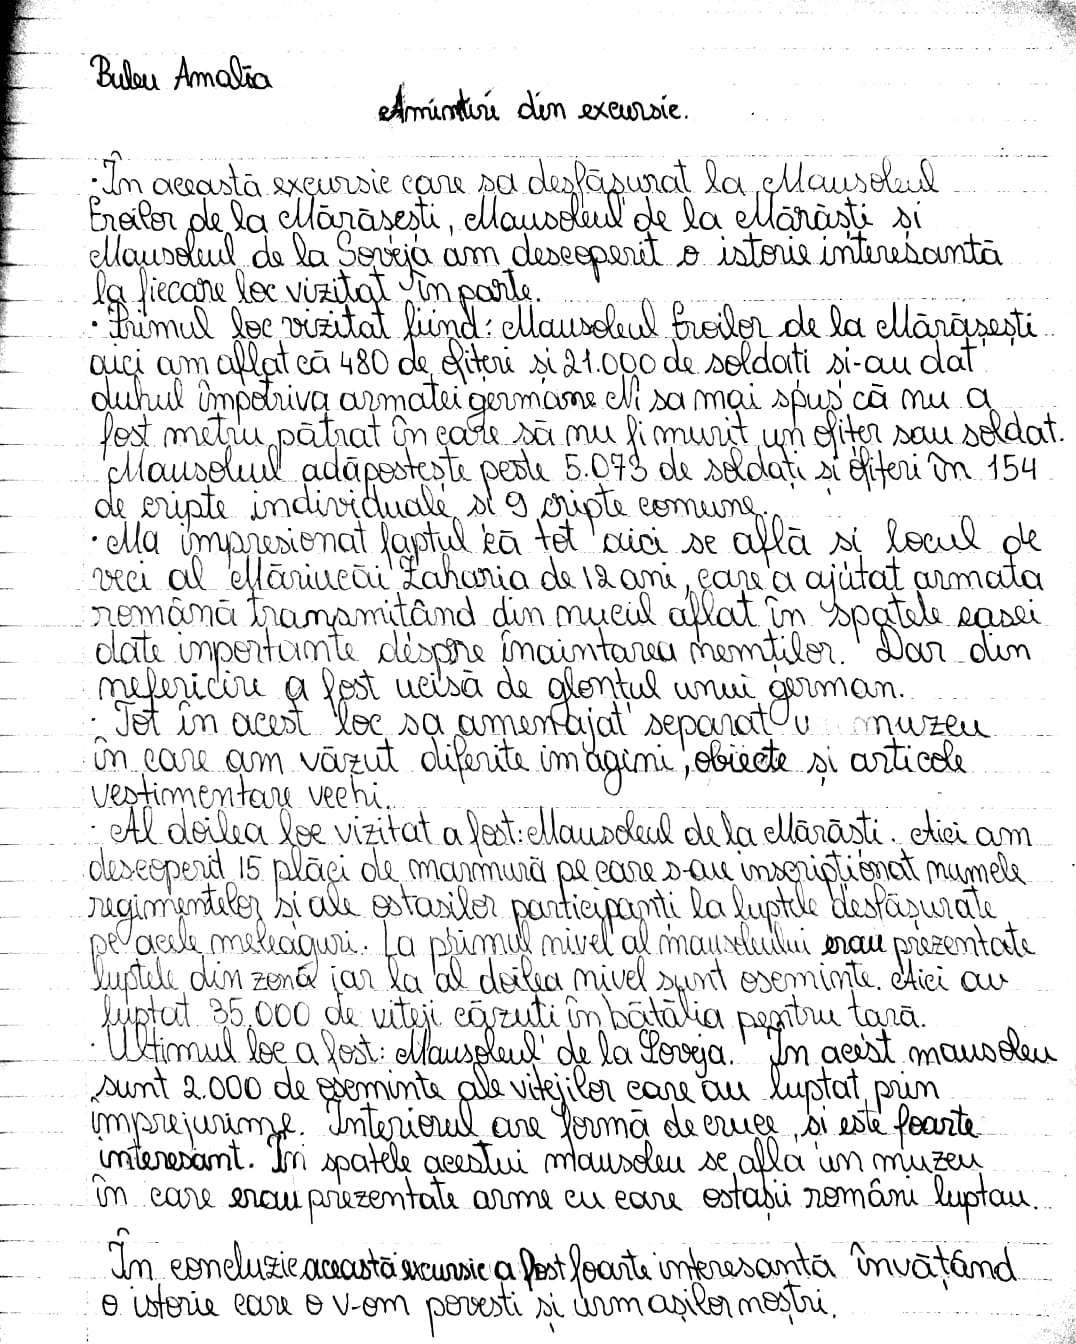 Buleu Amalia
Amintiri din excursie.
·În această excursie care sa desfășurat la Mausoleul
Eroilor de la Mărășești, Mausoleul de la Mărăști și
Mausoleul de la Soveja am descoperit o istorie interesantă
la fiecare loc vizitat în parte.
·Primul loc vizitat fiind: Mausoleul Eroilor de la Mărășești
aici am aflat că 480 de ofițeri și 21.000 de soldați si-au dat
duhul împotriva armatei germane Ni sa mai spus că nu a
fost metru pătrat în care să nu fi murit un ofițer sau soldat.
Mausoleul adăpostește peste 5.073 de soldați si ofițeri în 154
de cripte individuale si 9 cripte comune.
·Ma impresionat faptul că tot aici se află si locul de
veci al Măriucăi Zaharia de 12 ani, care a ajutat armata
română transmitând din nucul aflat în spatele casei
date inportante despre înaintarea nemților. Dar din
nefericire a fost ucisă de glonțul unui german.
· Tot în acest loc sa amenajat separat u muzeu
în care am văzut diferite imagini, obiecte și articole
vestimentare vechi.
· Al doilea loc vizitat a fost: Mausoleul de la Mărăsti. Aici am
descoperit 15 plăci de marmură pe care s-au inscripționat numele
regimentelor si ale ostasilor participanti la luptele desfăsurate
pe acele meleaguri. La primul nivel al mausoleului erau prezentate
luptele din zonă iar la al doilea nivel sunt oseminte. Aici au
luptat 35.000 de viteji căzuti în bătălia pentru tară.
· Ultimul loc a fost: Mausoleul de la Soveja. În acest mausoleu
sunt 2.000 de oseminte ale vitejilor care au luptat prin
imprejurime. Interiorul are formă de cruce, si este foarte
interesant. În spatele acestui mausoleu se afla un muzeu
în care erau prezentate arme cu care ostașii români luptau.
În concluzie această excursie a fost foarte interesantă învățând
o istorie care o v-om povesti și urmașilor noștri.